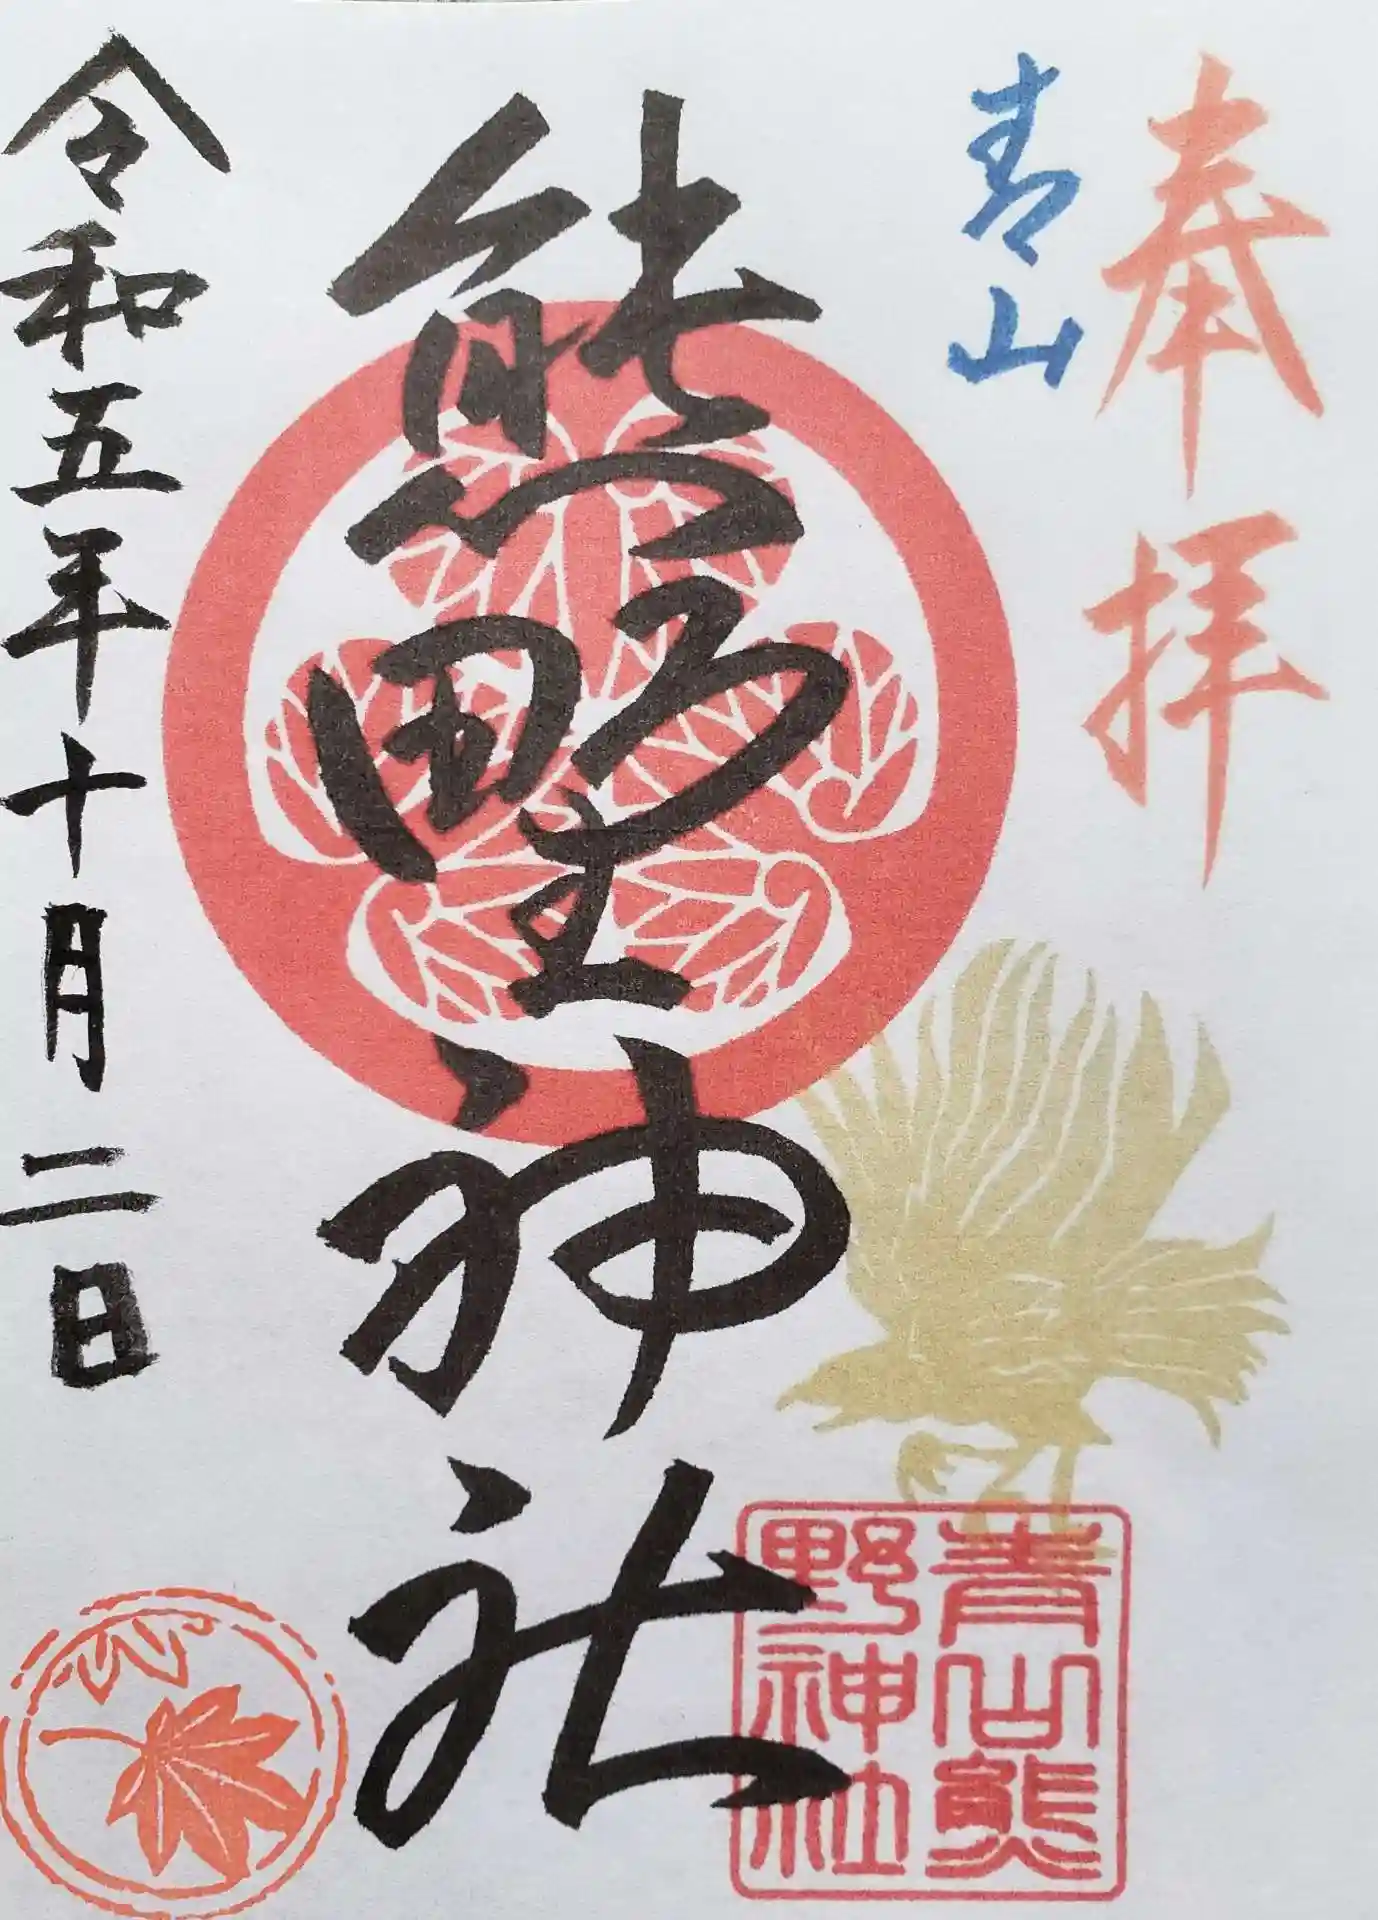 奉拝
青山
熊野神社
青山熊
野神社
令和五年十月二日